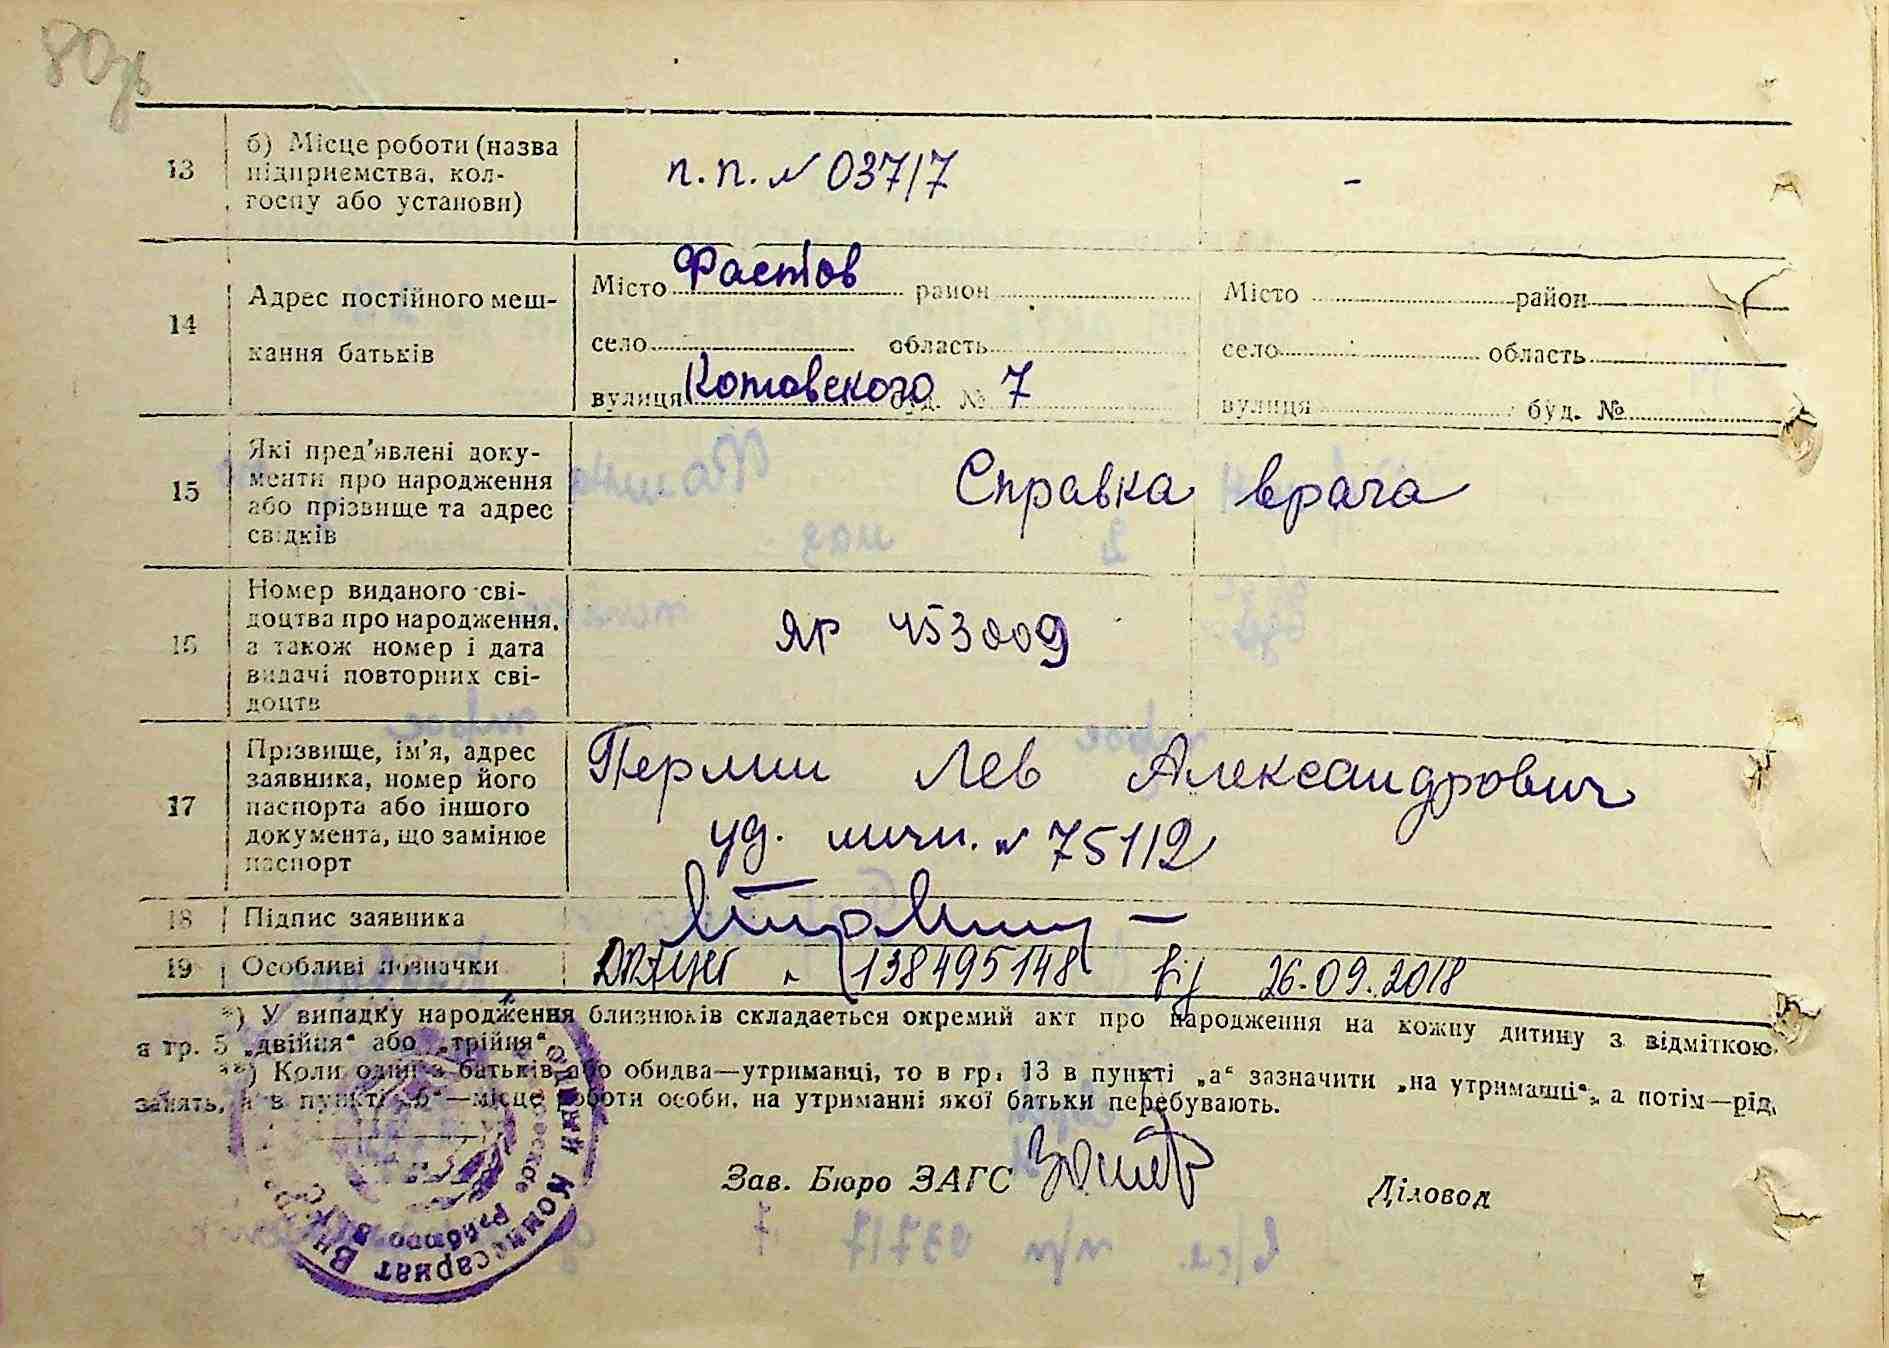 80зв
13 б) Місце роботи (назва
підприємства, кол-
госпу або установи)
п.п. № 03717 -
14 Адрес постійного меш-
кання батьків
Місто Фастов район
село область
вулиця Котовского буд. № 7
Місто район
село область
вулиця буд. №
15 Які пред'явлені доку-
менти про народження
або прізвище та адрес
свідків
Справка врача
16 Номер виданого сві-
доцтва про народження,
а також номер і дата
видачі повторних сві-
доцтв
ЯР 453009
17 Прізвище, ім'я, адрес
заявника, номер його
паспорта або іншого
документа, що замінює
паспорт
Перлин Лев Александрович
уд. личн. № 75112
18 Підпис заявника
19 Особливі позначки
138495148 від 26.09.2018
*) У випадку народження близнюків складається окремий акт про народження на кожну дитину з відміткою
в гр. 5 „двійня“ або „трійня“
**) Коли один з батьків або обидва—утриманці, то в гр. 13 в пункті „а“ зазначити „на утриманні“, а потім—рід
занять, а в пункті „б“—місце роботи особи, на утриманні якої батьки перебувають.
Зав. Бюро ЗАГС
Діловод